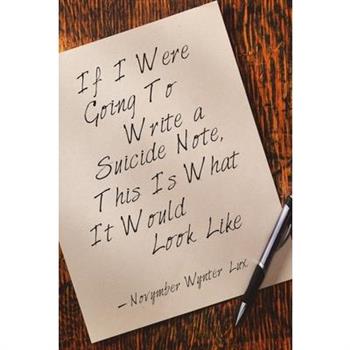 If I Were
Going To
Write a
Suicide Note,
This Is What
It Would
Look Like
– Novymber Wynter Lux